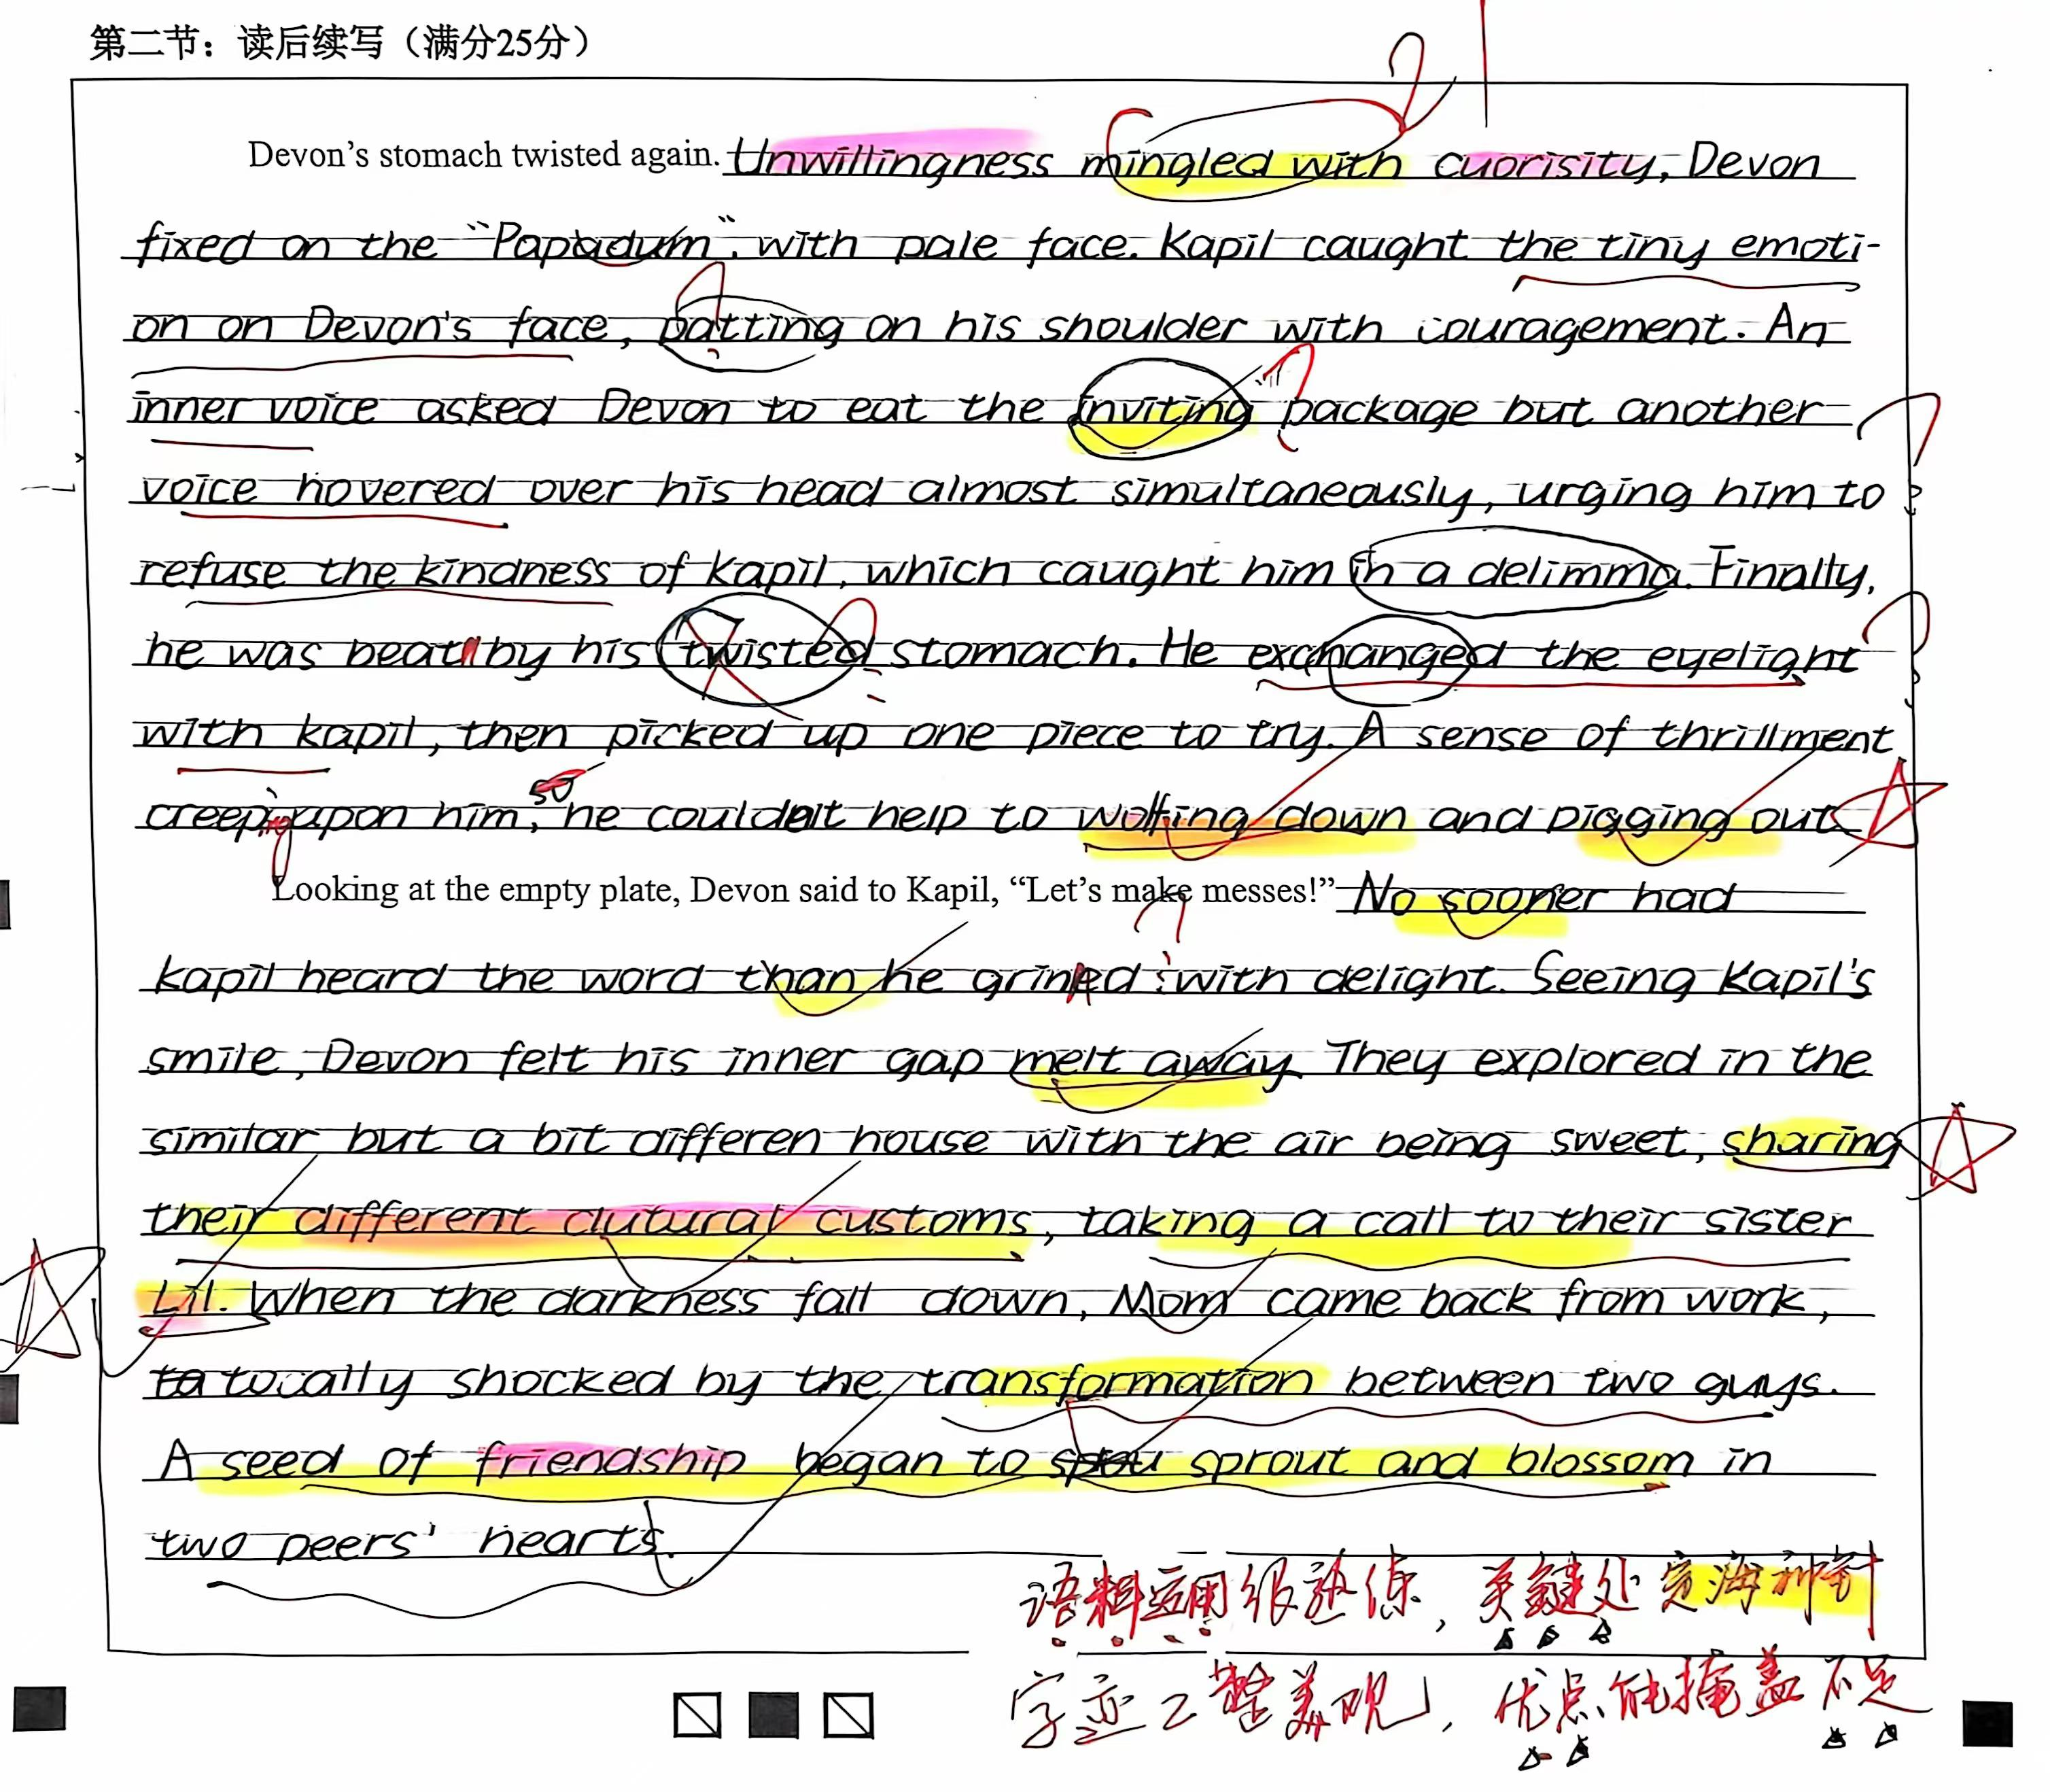 第二节：读后续写（满分25分）
21
Devon's stomach twisted again. Unwillingness mingled with cuorisity, Devon
fixed on the "Papadum". with pale face. Kapil caught the tiny emoti-
on on Devon's face, patting on his shoulder with couragement. An
inner voice asked Devon to eat the inviting package but another
voice hovered over his head almost simultaneously, urging him to
refuse the kindness of Kapil, which caught him in a delimma. Finally,
he was beat by his twisted stomach. He exchanged the eyelight
with Kapil, then picked up one piece to try. A sense of thrillment
creeping upon him, so he couldn't help to wolfing down and pigging out
Looking at the empty plate, Devon said to Kapil, “Let's make messes!” No sooner had
Kapil heard the word than he grinned with delight. Seeing Kapil's
smile, Devon felt his inner gap melt away. They explored in the
similar but a bit differen house with the air being sweet, sharing
their different clutural customs, taking a call to their sister
Lil. When the darkness fall down, Mom came back from work,
totally shocked by the transformation between two guys.
A seed of friendship began to sprout and blossom in
two peers' hearts.
语料运用很熟练，关键处定海神针
字迹工整美观，优点能掩盖不足